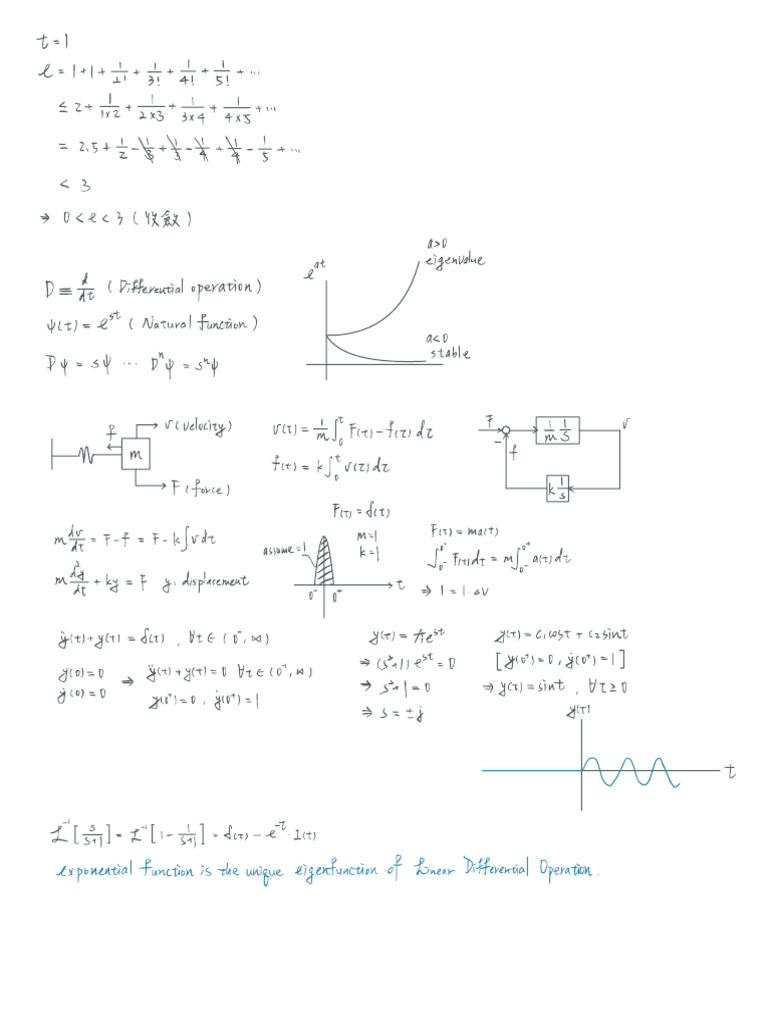 t = 1
e = 1 + 1 + 1/2! + 1/3! + 1/4! + 1/5! + ...
≤ 2 + 1/(1×2) + 1/(2×3) + 1/(3×4) + 1/(4×5) + ...
= 2.5 + 1/2 - 1/3 + 1/3 - 1/4 + 1/4 - 1/5 + ...
< 3
⇒ 0 < e < 3 (收斂)
a>0
eigenvalue
e^at
D ≡ d/dt (Differential operation)
ψ(t) = e^st (Natural function)
a<0
stable
Dψ = sψ ... D^nψ = s^nψ
f
v (velocity)
m
F (force)
v(t) = 1/m ∫_0^t F(τ) - f(τ) dτ
f(t) = k∫_0^t v(τ)dτ
F
-
f
1/m 1/s
v
k 1/s
m dv/dt = F - f = F - k∫v dt
m d²y/dt + ky = F y: displacement
F(t) = δ(t)
m=1
k=1
assume=1
0^- 0^+
t
F(t) = ma(t)
∫_0^-^0^+ F(t)dt = m∫_0^-^0^+ a(t)dt
⇒ 1 = 1·ΔV
ÿ(t) + y(t) = δ(t), ∀t∈(0^-, ∞)
y(0) = 0
ẏ(0) = 0
⇒ ÿ(t) + y(t) = 0 ∀t∈(0^+, ∞)
y(0^+) = 0, ẏ(0^+) = 1
y(t) = Ae^st
⇒ (s²+1)e^st = 0
⇒ s²+1 = 0
⇒ s = ±j
y(t) = c₁cost + c₂sint
[y(0^+) = 0, ẏ(0^+) = 1]
⇒ y(t) = sint, ∀t≥0
y(t)
t
L^-1[s/(s+1)] = L^-1[1 - 1/(s+1)] = δ(t) - e^-t · 1(t)
exponential function is the unique eigenfunction of Linear Differential Operation.